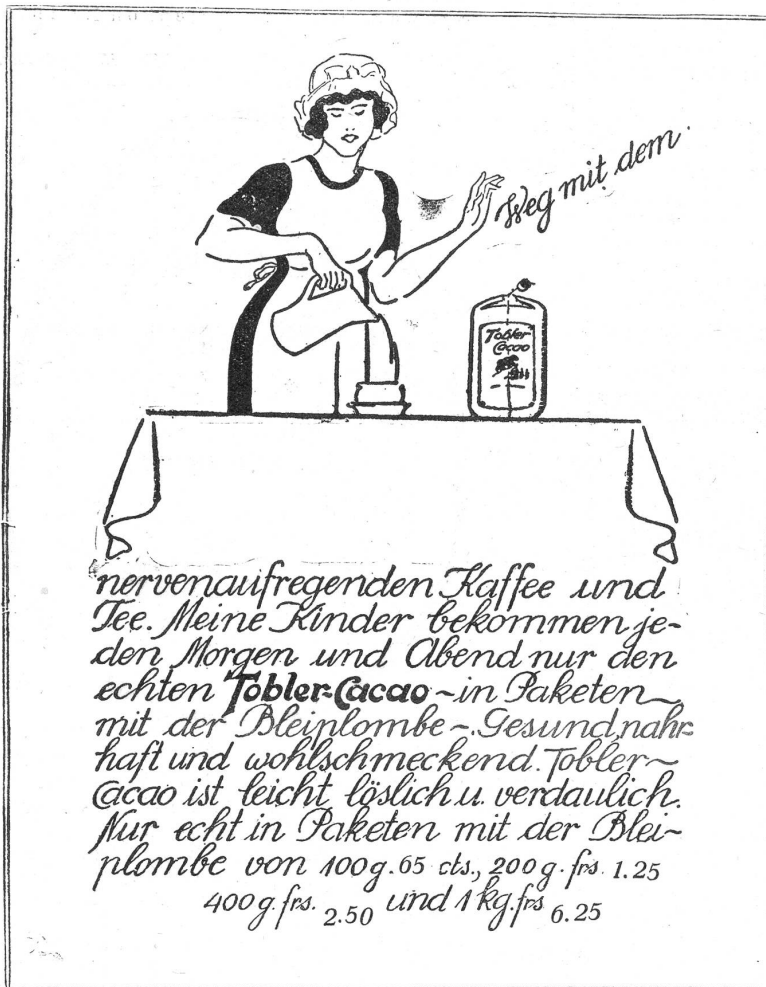 Weg mit dem
Tobler
Cacao
nervenaufregenden Kaffee und
Tee. Meine Kinder bekommen je-
den Morgen und Abend nur den
echten Tobler-Cacao - in Paketen
mit der Bleiplombe -. Gesund, nahr-
haft und wohlschmeckend. Tobler-
Cacao ist leicht löslich u. verdaulich.
Nur echt in Paketen mit der Blei-
plombe von 100g. 65 cts., 200g. frs. 1.25
400g. frs. 2.50 und 1kg. frs 6.25